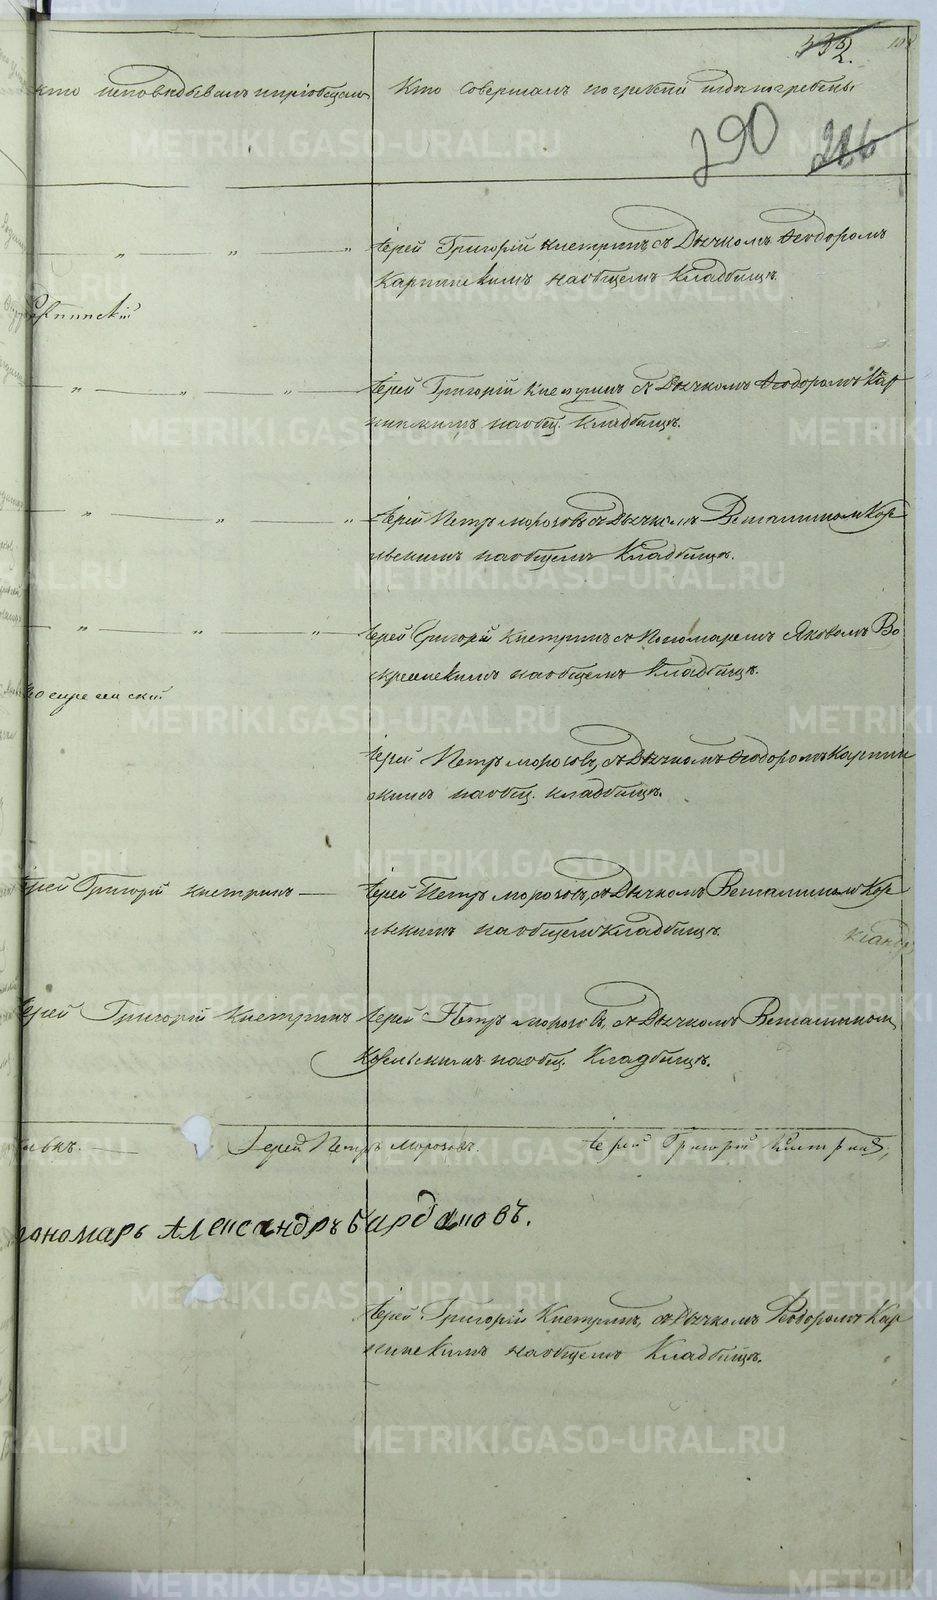 332.
Кто исповѣдывалъ и пріобщалъ
Кто совершалъ погребеніе и гдѣ погребены
290 216
Іерей Григорій Кистринъ съ Дьячкомъ Ѳеодоромъ
Карпинскимъ на общемъ Кладбищѣ.
Карпинскій
Іерей Григорій Кистринъ съ Дьячкомъ Ѳеодоромъ Кар
пинскимъ на общ. Кладбищѣ.
Іерей Петръ Морозовъ съ Дьячкомъ Веніаминомъ Кор
льскимъ на общемъ Кладбищѣ.
Іерей Григорій Кистринъ съ Пономаремъ Яковомъ Во
скресенскимъ на общемъ Кладбищѣ.
Воскресенскій
Іерей Петръ Морозовъ, съ Дьячкомъ Ѳеодоромъ Карпин
скимъ на общ. кладбищѣ.
Іерей Григорій Кистринъ
Іерей Петръ Морозовъ, съ Дьячкомъ Веніаминомъ Кор
льскимъ на общемъ кладбищѣ.
Іерей Григорій Кистринъ
Іерей Петръ Морозовъ, съ Дьячкомъ Веніаминомъ
Корельскимъ на общ. Кладбищѣ.
Іерей Петръ Морозовъ. Іерей Григорій Кистринъ,
пономарь Александръ Бардановъ.
Іерей Григорій Кистринъ, съ Дьячкомъ Ѳеодоромъ Кар
пинскимъ на общемъ Кладбищѣ.
METRIKI.GASO-URAL.RU